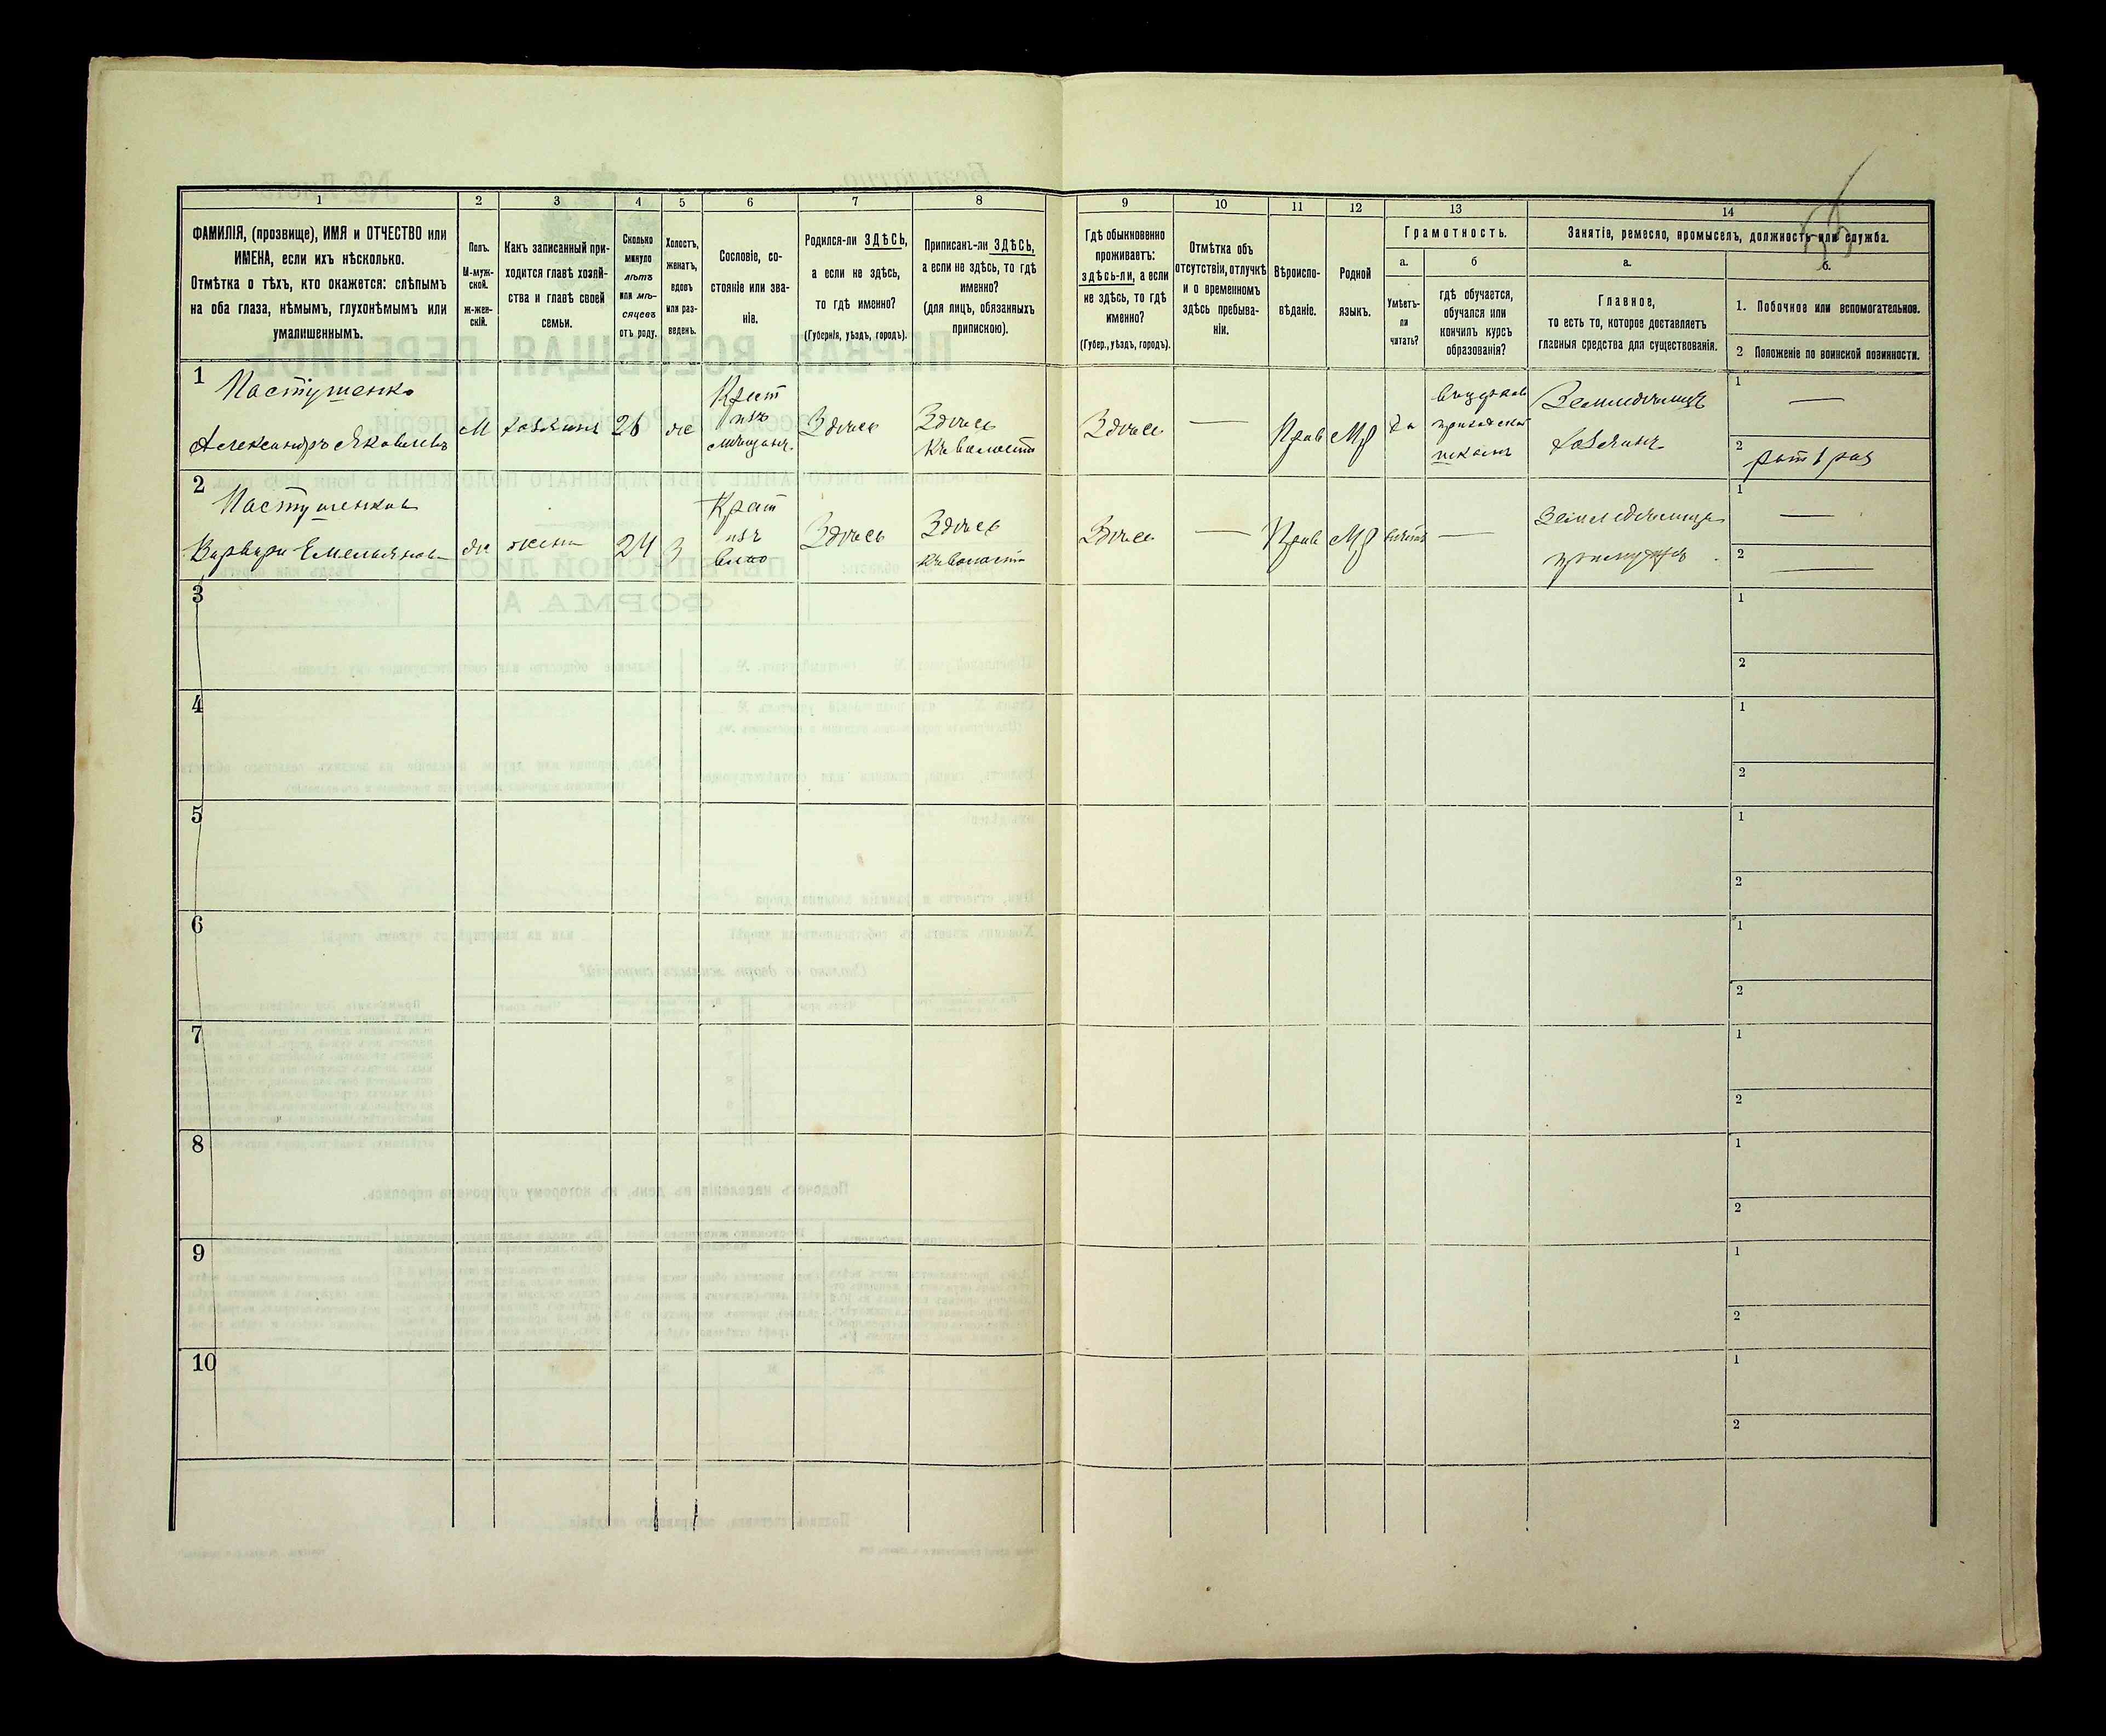 1
2
3
4
5
6
7
8
9
10
11
12
13
14
ФАМИЛІЯ, (прозвище), ИМЯ и ОТЧЕСТВО или
ИМЕНА, если ихъ нѣсколько.
Отмѣтка о тѣхъ, кто окажется: слѣпымъ
на оба глаза, нѣмымъ, глухонѣмымъ или
умалишеннымъ.
Полъ.
М-муж-
ской.
ж-жен-
скій.
Какъ записанный при-
ходится главѣ хозяй-
ства и главѣ своей
семьи.
Сколько
минуло
лѣтъ
или мѣ-
сяцевъ
отъ роду.
Холостъ,
женатъ,
вдовъ
или раз-
веденъ.
Сословіе, со-
стояніе или зва-
ніе.
Родился-ли ЗДѢСЬ,
а если не здѣсь,
то гдѣ именно?
(Губернія, уѣздъ, городъ).
Приписанъ-ли ЗДѢСЬ,
а если не здѣсь, то гдѣ
именно?
(для лицъ, обязанныхъ
припискою).
Гдѣ обыкновенно
проживаетъ:
здѣсь-ли, а если
не здѣсь, то гдѣ
именно?
(Губер., уѣздъ, городъ).
Отмѣтка объ
отсутствіи, отлучкѣ
и о временномъ
здѣсь пребыва-
ніи.
Вѣроиспо-
вѣданіе.
Родной
языкъ.
Грамотность.
а.
Умѣетъ-
ли
читать?
б
гдѣ обучается,
обучался или
кончилъ курсъ
образованія?
Занятіе, ремесло, промыселъ, должность или служба.
а.
Главное,
то есть то, которое доставляетъ
главныя средства для существованія.
б.
1. Побочное или вспомогательное.
2 Положеніе по воинской повинности.
1
Пастушенко
Александръ Яковлевъ
М
хозяинъ
26
же
Крест
изъ
Здѣсь
Здѣсь
Къ волости
Здѣсь
—
Прав
Мр
да
школѣ
Земледѣлецъ
хозяинъ
1
—
2
2
Пастушенкова
Варвара Емельянова
ж
жена
24
З
Крест
изъ
Здѣсь
Здѣсь
Къ волости
Здѣсь
—
Прав
Мр
—
Земледѣлица
при мужѣ
1
—
2
—
3
1
2
4
1
2
5
1
2
6
1
2
7
1
2
8
1
2
9
1
2
10
1
2